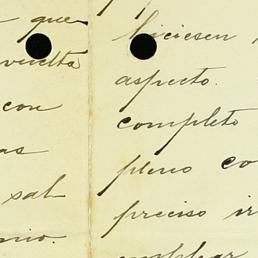 que
vuelta
con
as
sal
nio.
hiciesen
aspecto.
completo
pleno co
preciso ir